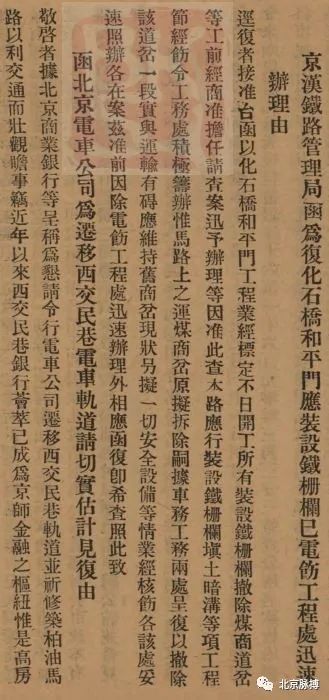 京漢鐵路管理局函爲復化石橋和平門應裝設鐵柵欄已電飭工程處迅速
辦理由
逕復者接准台函以化石橋和平門工程業經標定不日開工所有裝設鐵柵欄撤除煤商道岔
等工前經商准擔任請查案迅予辦理等因准此查本路應行裝設鐵柵欄塡土暗溝等項工程
節經飭令工務處積極籌辦惟馬路上之運煤商岔原擬拆除嗣據車務工務兩處呈復以撤除
該道岔一段實與運輸有碍應維持舊商岔現狀另擬一切安全設備等情業經核飭各該處妥
速照辦各在案茲准前因除電飭工程處迅速辦理外相應函復卽希查照此致
函北京電車公司爲遷移西交民巷電車軌道請切實估計見復由
敬啓者據北京商業銀行等呈稱爲懇請令行電車公司遷移西交民巷軌道並祈修築柏油馬
路以利交通而壯觀瞻事竊近年以來西交民巷銀行薈萃已成爲京師金融之樞紐惟是高房
北京脉搏